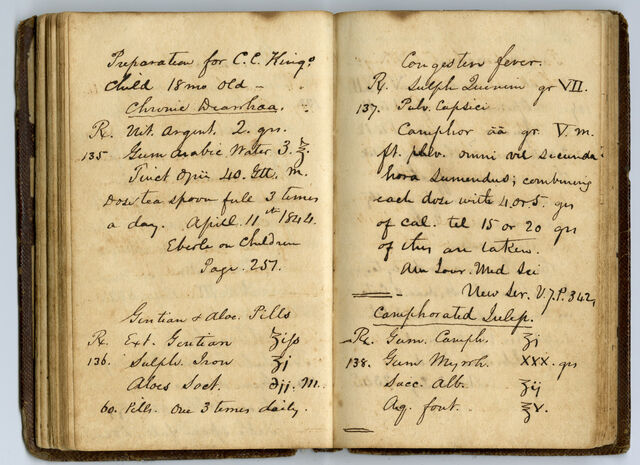 Preparation for C. C. King's
Child 18 mo old -
Chronic Diarrhaa.
Rx. Nit. Argent. 2. grs.
135 Gum Arabic Water 3. ℥
Tinct Opii 40. Gtt. m.
Dose tea spoon full 3 times
a day. Aprill 11th 1844.
Eberle on Children
Page. 257.
Gentian & Aloe. Pills
Rx. Ext. Gentian ʒijss
136. Sulph. Iron ʒj
Aloes Soct. ℈jj. M.
60. Pills. One 3 times daily.
Congesten fever.
Rx. Sulph Quinin gr VII.
137. Pulv. Capsici
Camphor āā gr. V. m.
ft. pulv. omni vel secunda
hora sumendus; combining
each dose with 4. or 5. grs
of cal. til 15 or 20 grs
of this are taken.
Am Jour. Med Sci
New Ser. V. 7. P. 342,
Camphorated Julep.
Rx. Gum. Camph. ʒj
138. Gum Myrrh. XXX. grs
Sacc. Alb. ʒij
Aq. font. ℥v.